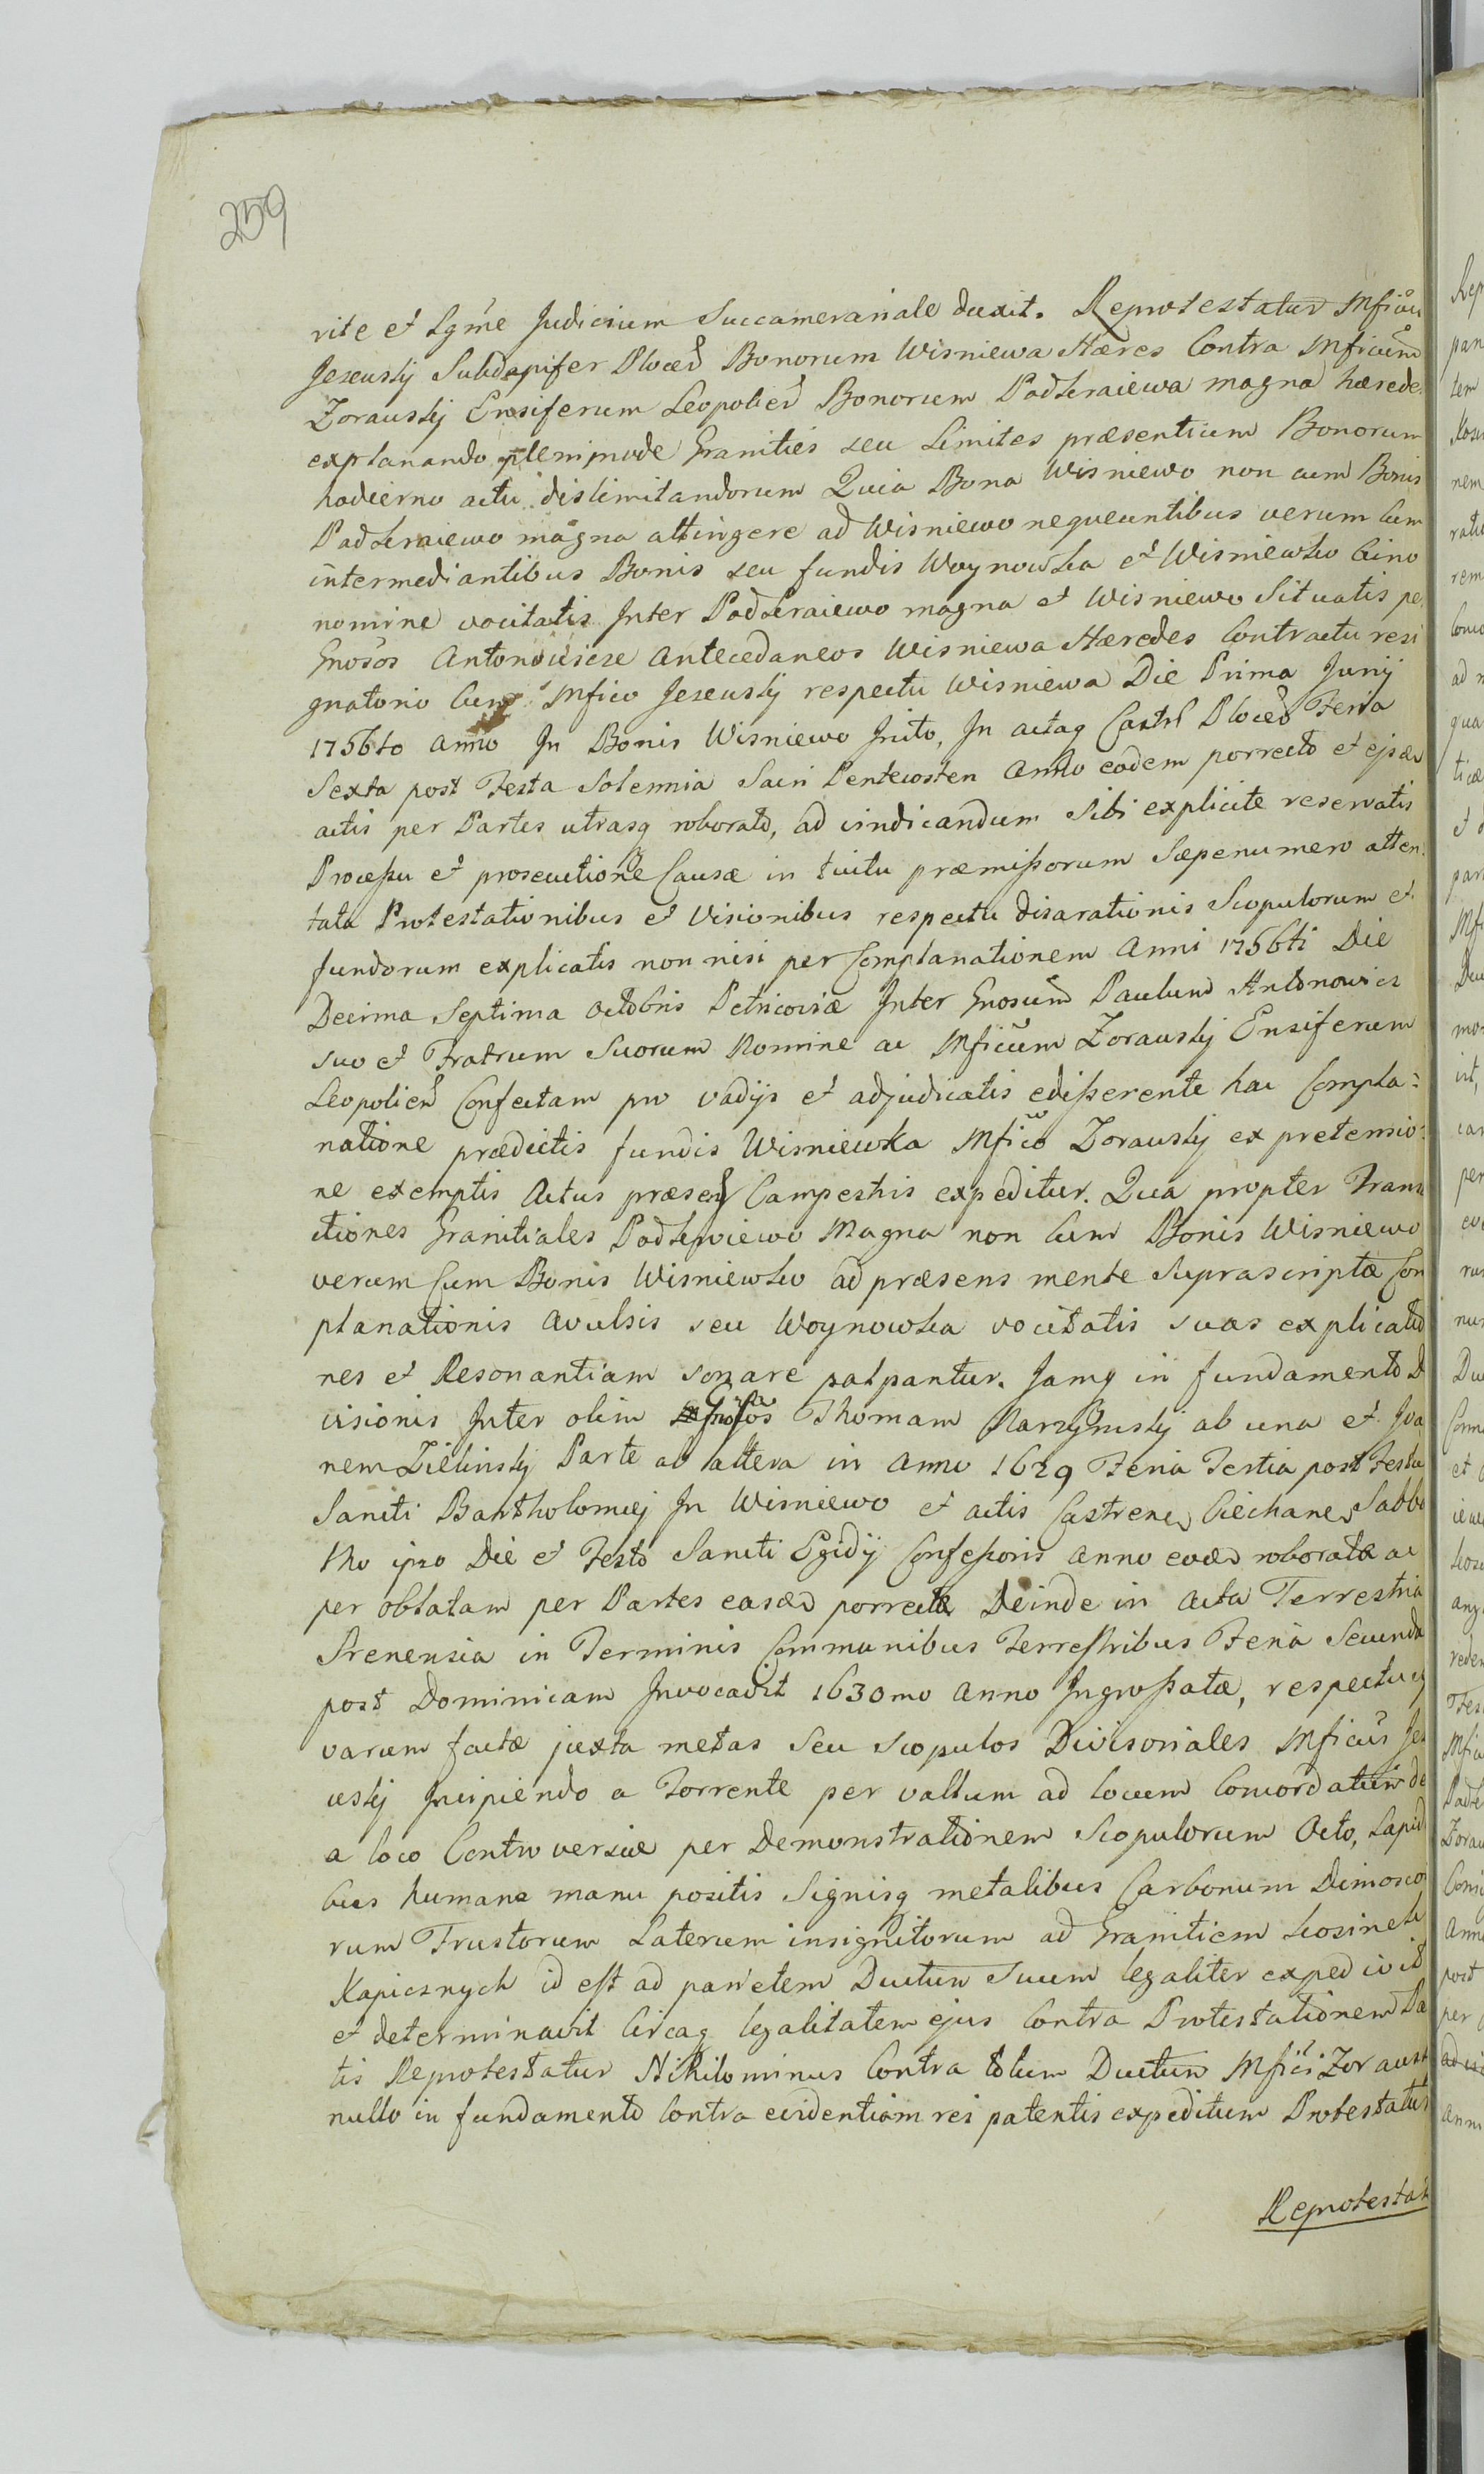 259
rite et Lgme Judicium Succamerariale duxit. Reprotestatur Mficus
Jezewskj Subdapifer Ploceñ Bonorum Wisniewa Hæres Contra Mficum
Zorauskj Ensiferum Leopolieñ Bonorum Podkraiewa magna hærede
explanando plenimode Granities seu Limites præsentium Bonorum
hodierno actu dislimitandorum Quia Bona Wisniewo non cum Bonis
Podkraiewo magna attingere ad Wisniewo nequeuntibus verum Cum
intermediantibus Bonis seu fundis Woynowka et Wisniewko bino
nomine vocitatis Inter Podkraiewo magna et Wisniewo Situatis pe
Gnosos Antonowicze Antecedaneos Wisniewa Hæredes Contractu resi
gnatorio Cum Mfico Jezeuskj respectu Wisniewa Die Prima Junij
1756to Anno In Bonis Wisniewo Inito, In actaq Castrĩ Ploceñ Feria
Sexta post Festa Solennia Sacri Pentecosten Anno eodem porrecto et ejsdem
actis per Partes utrasq roborato, ad vindicandum Sibi explicite reservatis
Processu et prosecutione Causæ in tuitu præmissorum Sæpenumero atten
tata Protestationibus et Visionibus respectu disarationis Scopulorum et
fundorum explicatis non nisi per Complanationem Anni 1756ti Die
Decima Septima Octobris Petricoviæ Inter Gnosum Paulum Antonowicz
suo et Fratrum Suorum Nomine ac Mficum Zorauskj Ensiferum
Leopolieñ Confectam pro vadijs et adjudicatis edisserente hac Compla=
natione prædictis fundis Wisniewka Mfico Zorauskj ex pretensio=
ne exemptis Actus præsens Campestris expeditur. Qua propter Trans
ctiones Granitiales Podkraiewo Magna non Cum Bonis Wisniewo
verum Cum Bonis Wisniewko ad præsens mente Suprascriptæ Com
planationis avulsis seu Woynowka vocitatis suas explicatio
nes et Resonantiam sonare palpantur. Jamq in fundamento D
visionis Inter olim Gnosos Thomam Narzymskj ab una et Joa
nem Zielinskj Parte ab altera in Anno 1629 Feria Tertia post Festu
Sancti Bartholomæj In Wisniewo et actis Castrens Ciechanens Sabba
tho ipso Die et Festo Sancti Egidij Confessoris Anno eodem roboratæ ac
per oblatam per Partes easdem porrectæ Deinde in Acta Terrestria
Srenensia in Terminis Communibus Terrestribus Feria Secunda
post Dominicam Invocavit 1630mo Anno Ingrossatæ, respectu
varum factæ juxta metas Seu Scopulos Divisoriales Mficus Jez
uskj Incipiendo a Torrente per vallum ad locum Concordatum de
a loco Controversiæ per Demonstrationem Scopulorum Octo, Lapid
bus humana manu positis Signisq metalibus Carbonum Dimosco
rum Frustorum Laterum insignitorum ad Granitiem
Kapicznych id est ad parietem Ductum Suum legaliter expedivit
et determinavit Circaq legalitatem ejus Contra Protestationem Pa
tis Reprotestatur Nihilominus Contra totum Ductum Mfici Zorausk
nullo in fundamento Contra evidentiam rei patentis expeditum Protestatur
Reprotestat